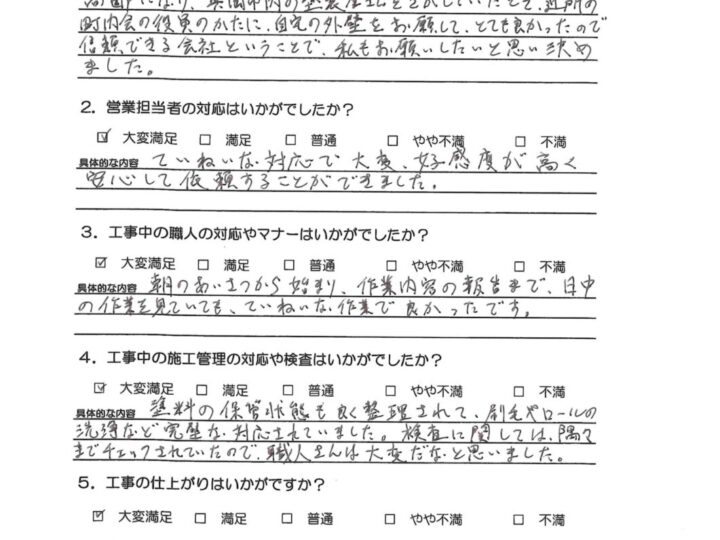 町内会の役員のかたに、自宅の外壁をお願して、とても良かったので
信頼できる会社ということで、私もお願いしたいと思い決め
ました。
2. 営業担当者の対応はいかがでしたか?
☑ 大変満足 □ 満足 □ 普通 □ やや不満 □ 不満
具体的な内容 ていねいな対応で大変、好感度が高く
安心して依頼することができました。
3. 工事中の職人の対応やマナーはいかがでしたか?
☑ 大変満足 □ 満足 □ 普通 □ やや不満 □ 不満
具体的な内容 朝のあいさつから始まり、作業内容の報告まで、日中
の作業を見ていても、ていねいな作業で良かったです。
4. 工事中の施工管理の対応や検査はいかがでしたか?
☑ 大変満足 □ 満足 □ 普通 □ やや不満 □ 不満
具体的な内容 塗料の保管状態も良く整理されて、刷毛やロールの
洗浄など完璧な対応されていました。検査に関しては、隅々
までチェックされていたので、職人さんは大変だなと思いました。
5. 工事の仕上がりはいかがですか?
☑ 大変満足 □ 満足 □ 普通 □ やや不満 □ 不満